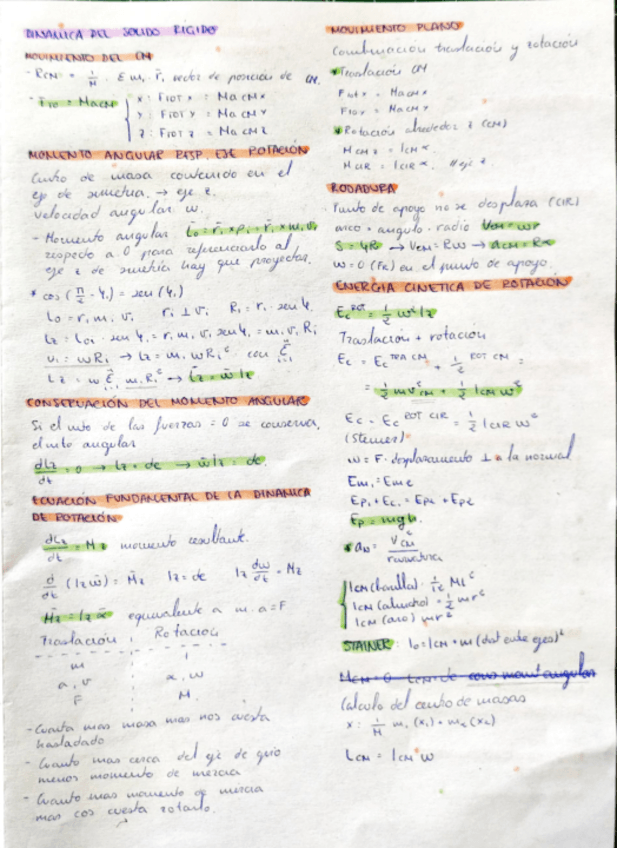 DINAMICA DEL SOLIDO RIGIDO
MOVIMIENTO DEL CM
- RCM = 1/M · Σ mᵢ · r̄ᵢ vector de posición de CM.
- F̄TOT = M aCM { x: FTOT x = M aCM x
y: FTOT y = M aCM y
z: FTOT z = M aCM z
MOMENTO ANGULAR RESP. EJE ROTACIÓN
Centro de masa contenido en el
eje de simetria. → eje z.
velocidad angular w.
- Momento angular L̄o = r̄ᵢ x pᵢ = r̄ᵢ x mᵢ vᵢ
respecto a O para referenciarlo al
eje z de simetria hay que proyectar.
* cos (π/2 - φᵢ) = sen (φᵢ)
Lo = rᵢ mᵢ vᵢ rᵢ ⊥ vᵢ Rᵢ = rᵢ · sen φᵢ
Lz = Loᵢ · sen φᵢ = rᵢ mᵢ vᵢ sen φᵢ = mᵢ vᵢ Rᵢ
vᵢ = wRᵢ → Lz = mᵢ wRᵢ² con Σ
Lz = w Σ mᵢ Rᵢ² → L̄z = w̄ Iz
CONSERVACIÓN DEL MOMENTO ANGULAR
Si el mto de las fuerzas = 0 se conserva,
el mto angular
dLz/dt = 0 → Lz = cte → w̄ Iz = cte.
ECUACIÓN FUNDAMENTAL DE LA DINAMICA
DE ROTACIÓN
dLz/dt = Mz momento resultante.
d/dt (Iz w̄) = M̄z Iz = cte Iz dw/dt = Mz
M̄z = Iz ᾱ equivalente a m · a = F
Traslación | Rotación
m | I
a, v | α, w
F | M
- Cuanta mas masa mas nos cuesta
trasladado
- Cuanto mas cerca del eje de giro
menos momento de inercia
- Cuanto mas momento de inercia
mas nos cuesta rotarlo.
MOVIMIENTO PLANO
Combinacion traslación y rotación
* Traslación CM
FTOT x = M aCM x
FTOT y = M aCM y
* Rotación alrededor z (CM)
MCM z = ICM α
MCIR = ICIR α // eje z
RODADURA
Punto de apoyo no se desplaza (CIR)
arco = angulo · radio VCM = wr
S = φR → VCM = Rw → aCM = Rα
w = 0 (FR) en el punto de apoyo.
ENERGIA CINETICA DE ROTACIÓN
Ec ROT = 1/2 w² Iz
Traslación + rotación
Ec = Ec TRA CM + 1/2 ROT CM =
= 1/2 m v² CM + 1/2 ICM w²
Ec = Ec ROT CIR = 1/2 ICIR w²
(Steiner)
w = F · desplazamiento ⊥ a la normal
Em₁ = Em₂
Ep₁ + Ec₁ = Ep₂ + Ec₂
Ep = mgh.
* aN = VCM²/rcurvatura
ICM (varilla) = 1/12 ML²
ICM (cilindro) = 1/2 mr²
ICM (aro) mr²
STAINER: Io = ICM + m (dist entre ejes)²
MCM = 0 LCM = cte cons moment angular
Calculo del centro de masas
x: 1/M m₁ (x₁) + m₂ (x₂)
LCM = ICM w